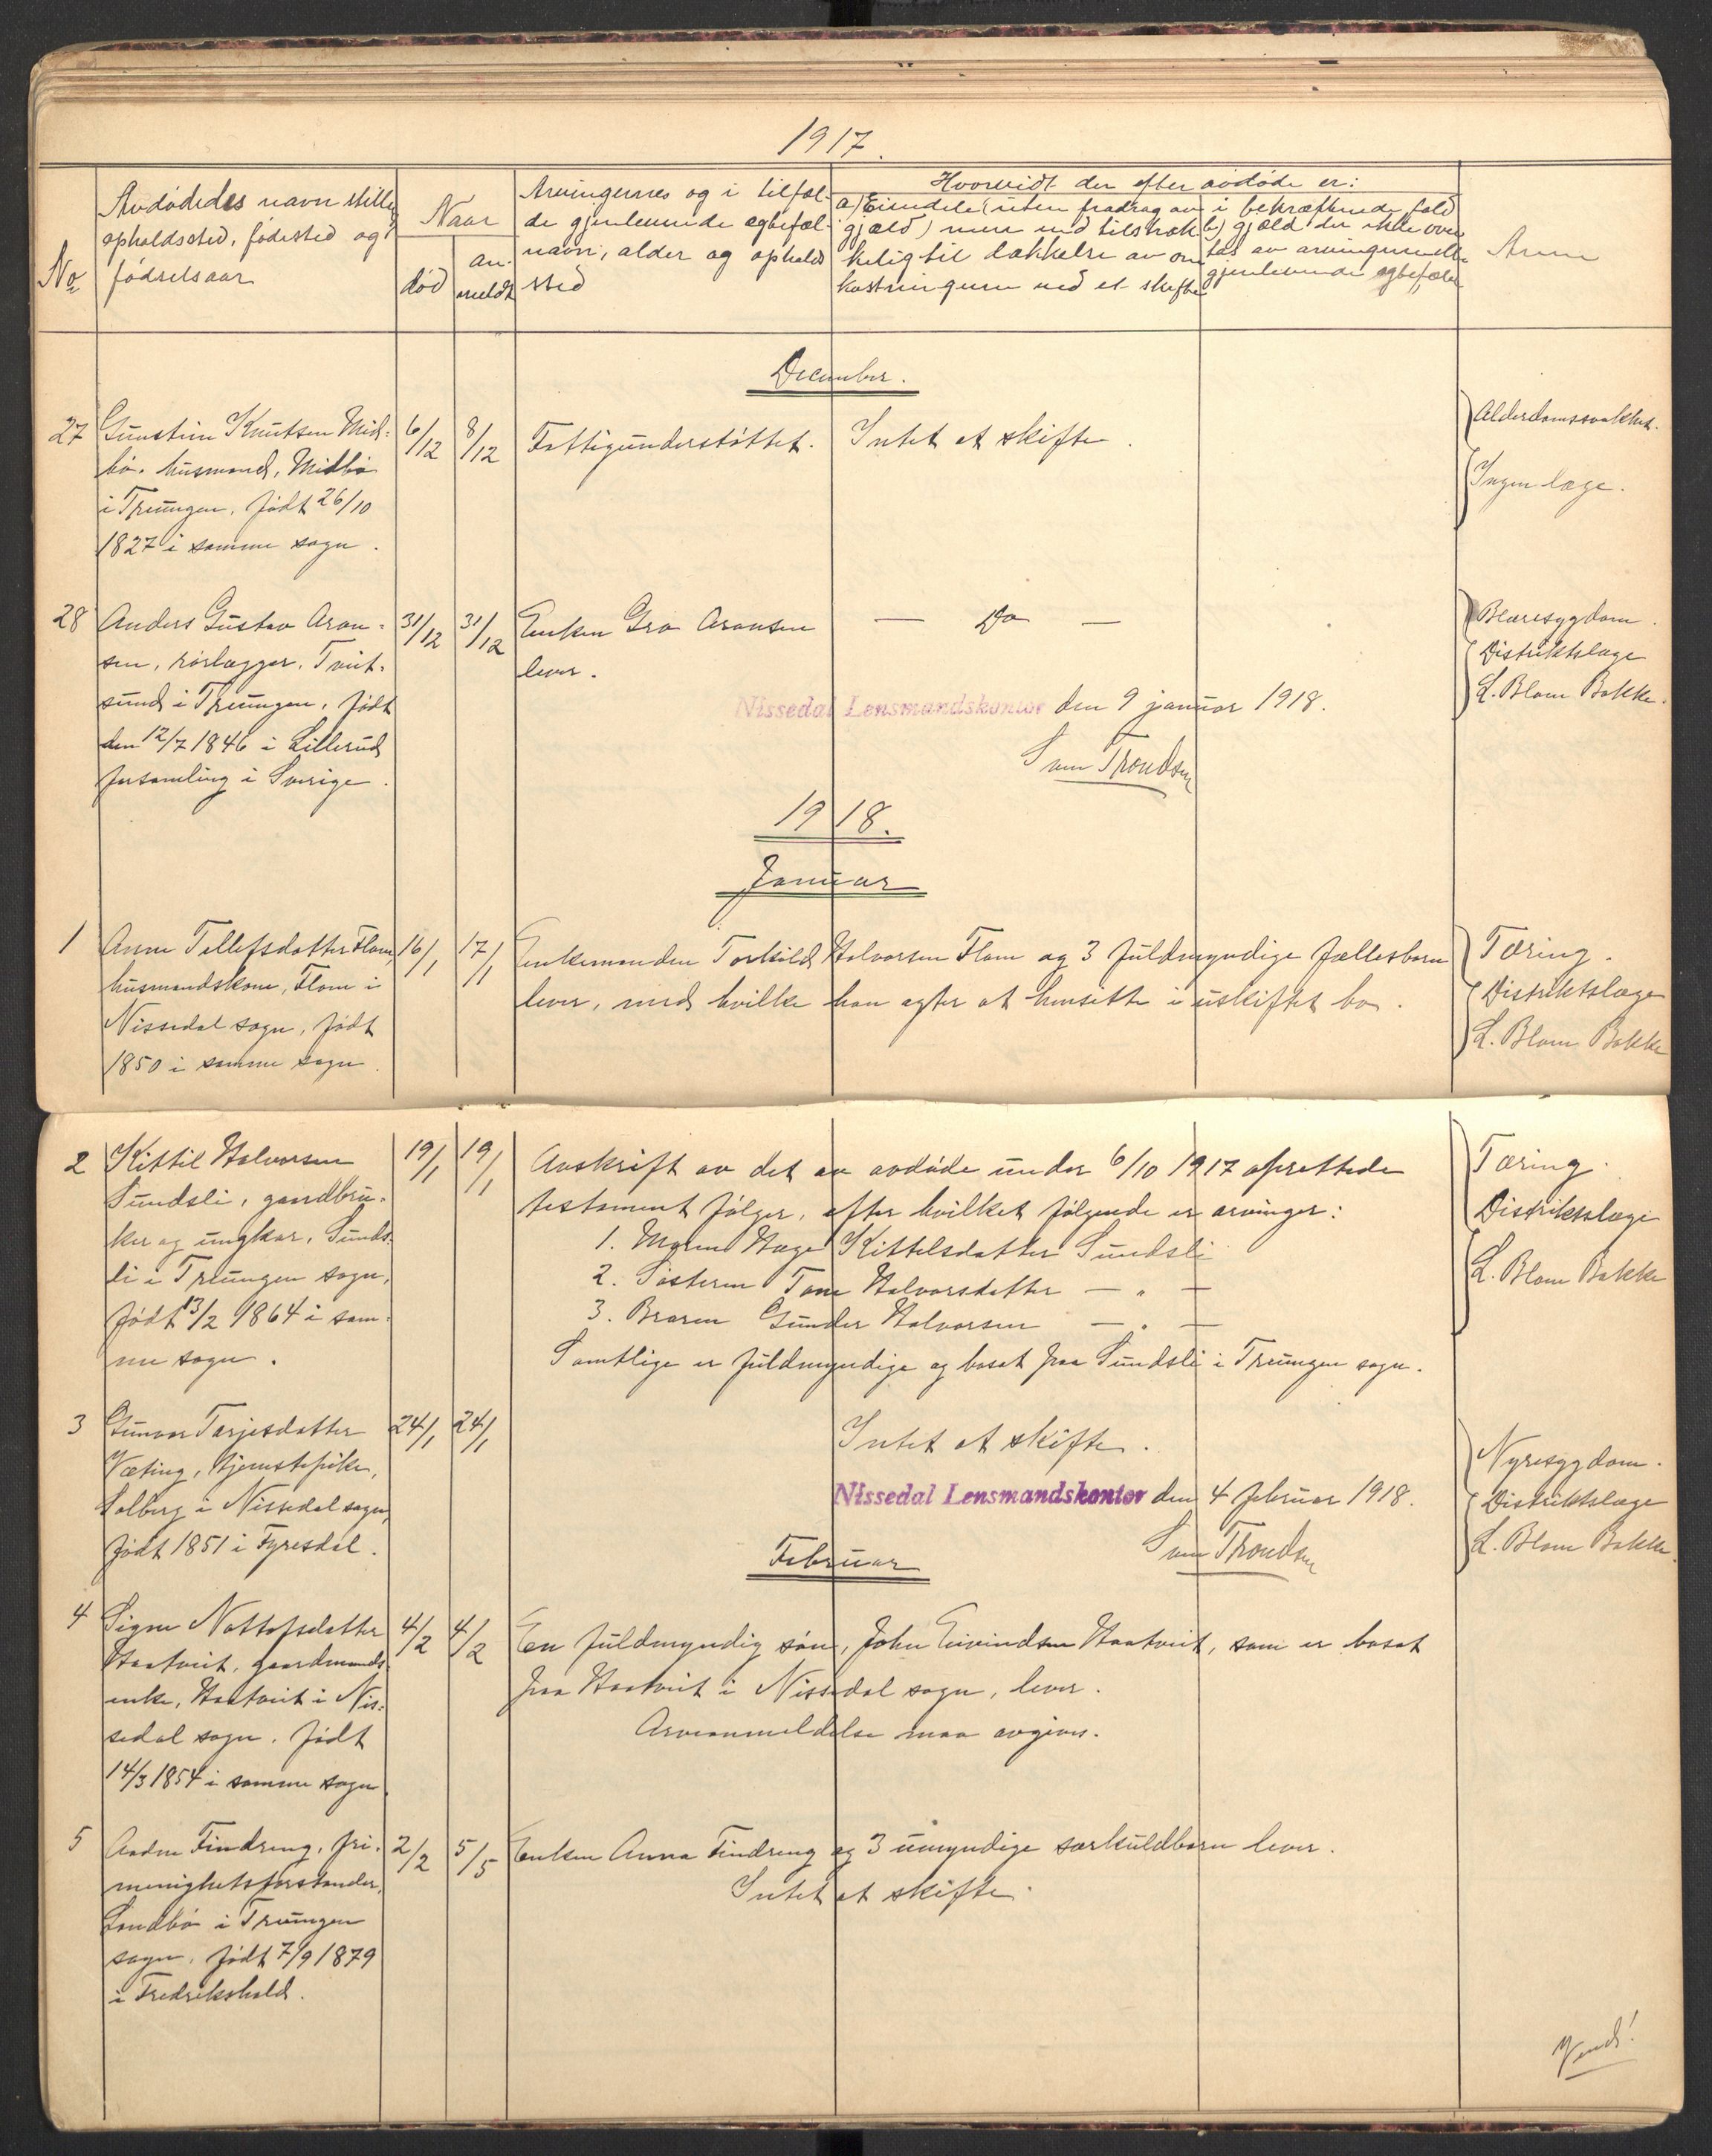 1917.
No
Avdødedes navn stilling
opholdssted, fødested og
fødselsaar
Naar
død
an-
meldt
Arvingernes og i tilfæl-
de gjenlevende egtefæl-
navn, alder og opholds
sted
Hvorvidt der efter avdøde er:
a) Eiendele (uten fradrag av
gjæld) mere end tilstræk-
kelig til dækkelse av om
kostningerne ved et skifte
i bekræftende fald
b) gjæld der ikke over
tas av arvingerne eller
gjenlevende egtefælle
Anm
December.
27
Gunstein Knutsen Mid-
bø. husmand, Midbø
i Treungen, født 26/10
1827 i samme sogn.
6/12
8/12
Fattigunderstøttet.
Intet at skifte.
Alderdomssvakhet.
Ingen læge.
28
Anders Gustav Aron-
sen, rørlægger, Tveit-
sund i Treungen, født
den 12/7 1846 i Lillerud
forsamling i Sverige.
31/12
31/12
Enken Gro Aronsen
lever.
— Do —
Blæresygdom.
Distriktslæge
L. Blom Bakke.
Nissedal Lensmandskontor den 9 januar 1918.
Sven Trondsen
1918.
Januar
1
Anne Tellefsdatter Flom,
husmandskone, Flom i
Nissedal sogn, født
1850 i samme sogn.
16/1
17/1
Enkemanden Torkild Halvorsen Flom og 3 fuldmyndige fællesbarn
lever, med hvilke han agter at hensitte i uskiftet bo.
Tæring.
Distriktslæge
L. Blom Bakke
2
Kittil Halvorsen
Sundsli, gaardbru-
ker og ungkar, Sunds-
li i Treungen sogn,
født 13/2 1864 i sam-
me sogn.
19/1
19/1
Avskrift av det av avdøde under 6/10 1917 oprettede
testament følger, efter hvilket følgende er arvinger:
1. Moren Hæge Kittelsdatter Sundsli
2. Søsteren Tone Halvorsdatter — „ —
3. Broren Gunder Halvorsen — „ —
Samtlige er fuldmyndige og bosat paa Sundsli i Treungen sogn.
Tæring.
Distriktslæge
L. Blom Bakke
3
Gunvor Tarjesdatter
Væting, tjenestepike,
Solberg i Nissedal sogn,
født 1851 i Fyresdal.
24/1
24/1
Intet at skifte.
Nyresygdom.
Distriktslæge
L. Blom Bakke.
Nissedal Lensmandskontor den 4 februar 1918.
Sven Trondsen
Februar
4
Signe Nottofsdatter
Haatveit, gaardmands-
enke, Haatveit i Nis-
sedal sogn, født
14/3 1854 i samme sogn.
4/2
4/2
En fuldmyndig søn, John Eivindsen Haatveit, som er bosat
paa Haatveit i Nissedal sogn, lever.
Arveanmeldelse maa avgives.
5
Findreng, fri-
menighetsforstander,
i Treungen
sogn, født 7/9 1879
i Fredrikshald.
2/2
5/5
Enken Anna Findreng og 3 umyndige særkuldbarn lever.
Intet at skifte.
Vend!